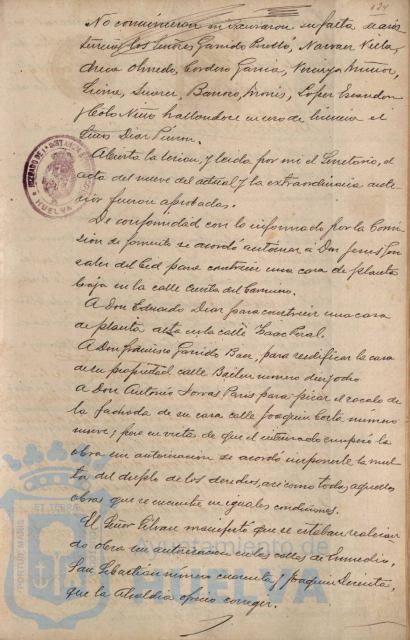 134
No concurrieron ni excusaron su falta de asis
tencia los señores Garrido Perelló, Narvaez, Villa,
Olmedo, Cordero Garcia, Vizcaya Muñoz,
Suarez, Barroso, Monis, Lopez Escandon
y Colo Niño hallandose en uso de licencia el
Señor Diaz
Abierta la sesion y leida por mi el Secretario, el
acta del nueve del actual y la extraordinaria ante
rior fueron aprobadas.
De conformidad con lo informado por la Comi
sion de fomento se acordó autorizar á Don Jesus Gon
zalez del Cid para construir una casa de planta
baja en la calle Cuesta del Carnicero.
A Don Eduardo Diaz para construir una casa
de planta alta en la calle Isaac Peral.
A Don Francisco Garrido para reedificar la casa
de su propiedad calle Bailen numero diez y ocho
A Don Antonio Paris para picar el zocalo de
la fachada de su casa calle Joaquin Costa número
nueve; pero en vista de que el interesado empezó la
obra sin autorizacion se acordó imponerle la mul
ta del duplo de los derechos, asi como todas aquellas
obras que se encuentre en iguales condiciones.
El Señor manifestó que se estaban realizan
do obras sin autorizacion en las calles de Enmedio,
San Sebastián número cuarenta y Joaquin
que la Alcaldia ofreció corregir.
JUZGADO DE 1ª INSTANCIA
HUELVA
PORTUS MARIS
ET TERRÆ
Ayuntamiento de
HUELVA